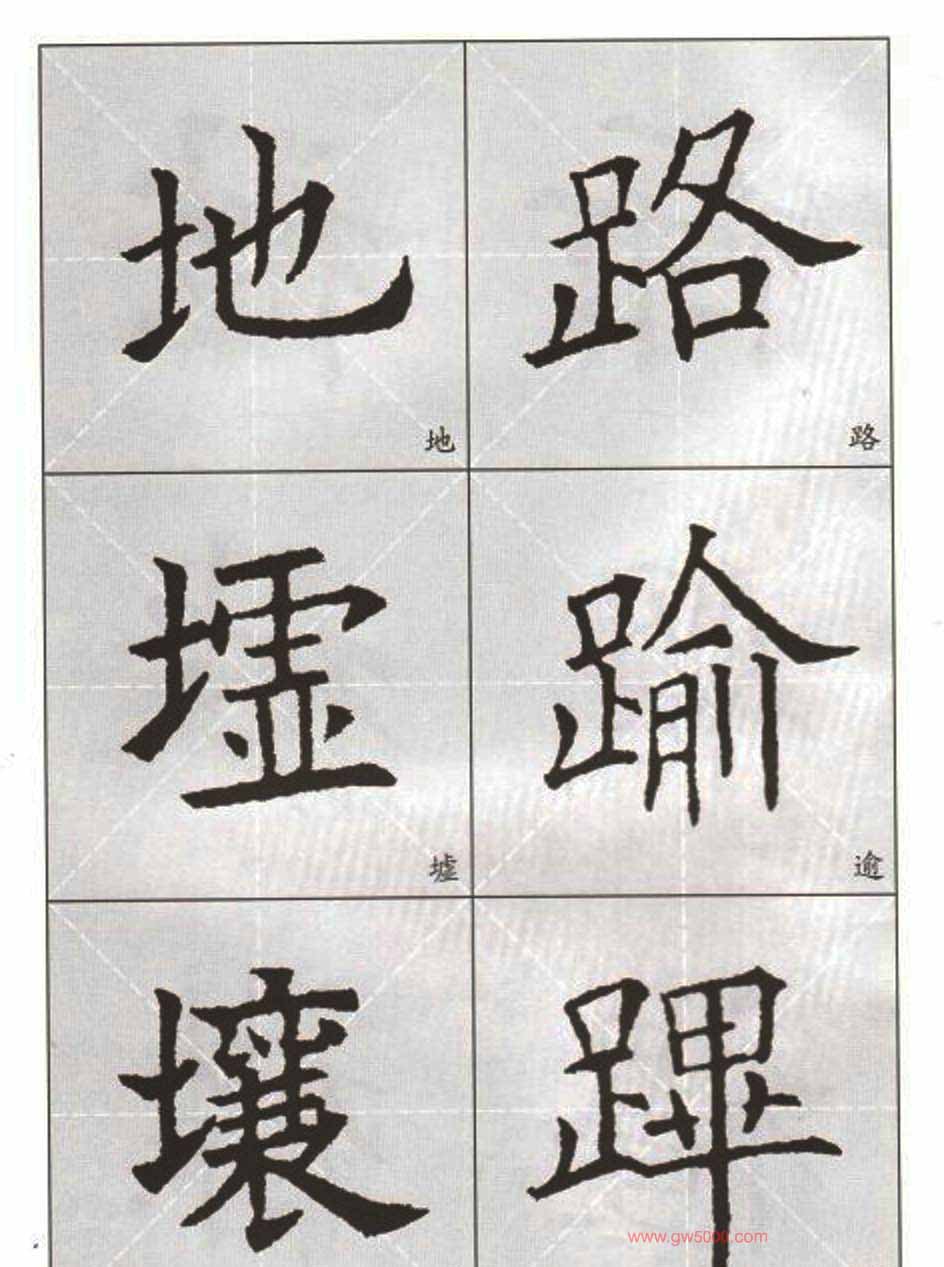 地 路
地 路
墟 踰
墟 逾
壤 蹕
www.gw5000.com